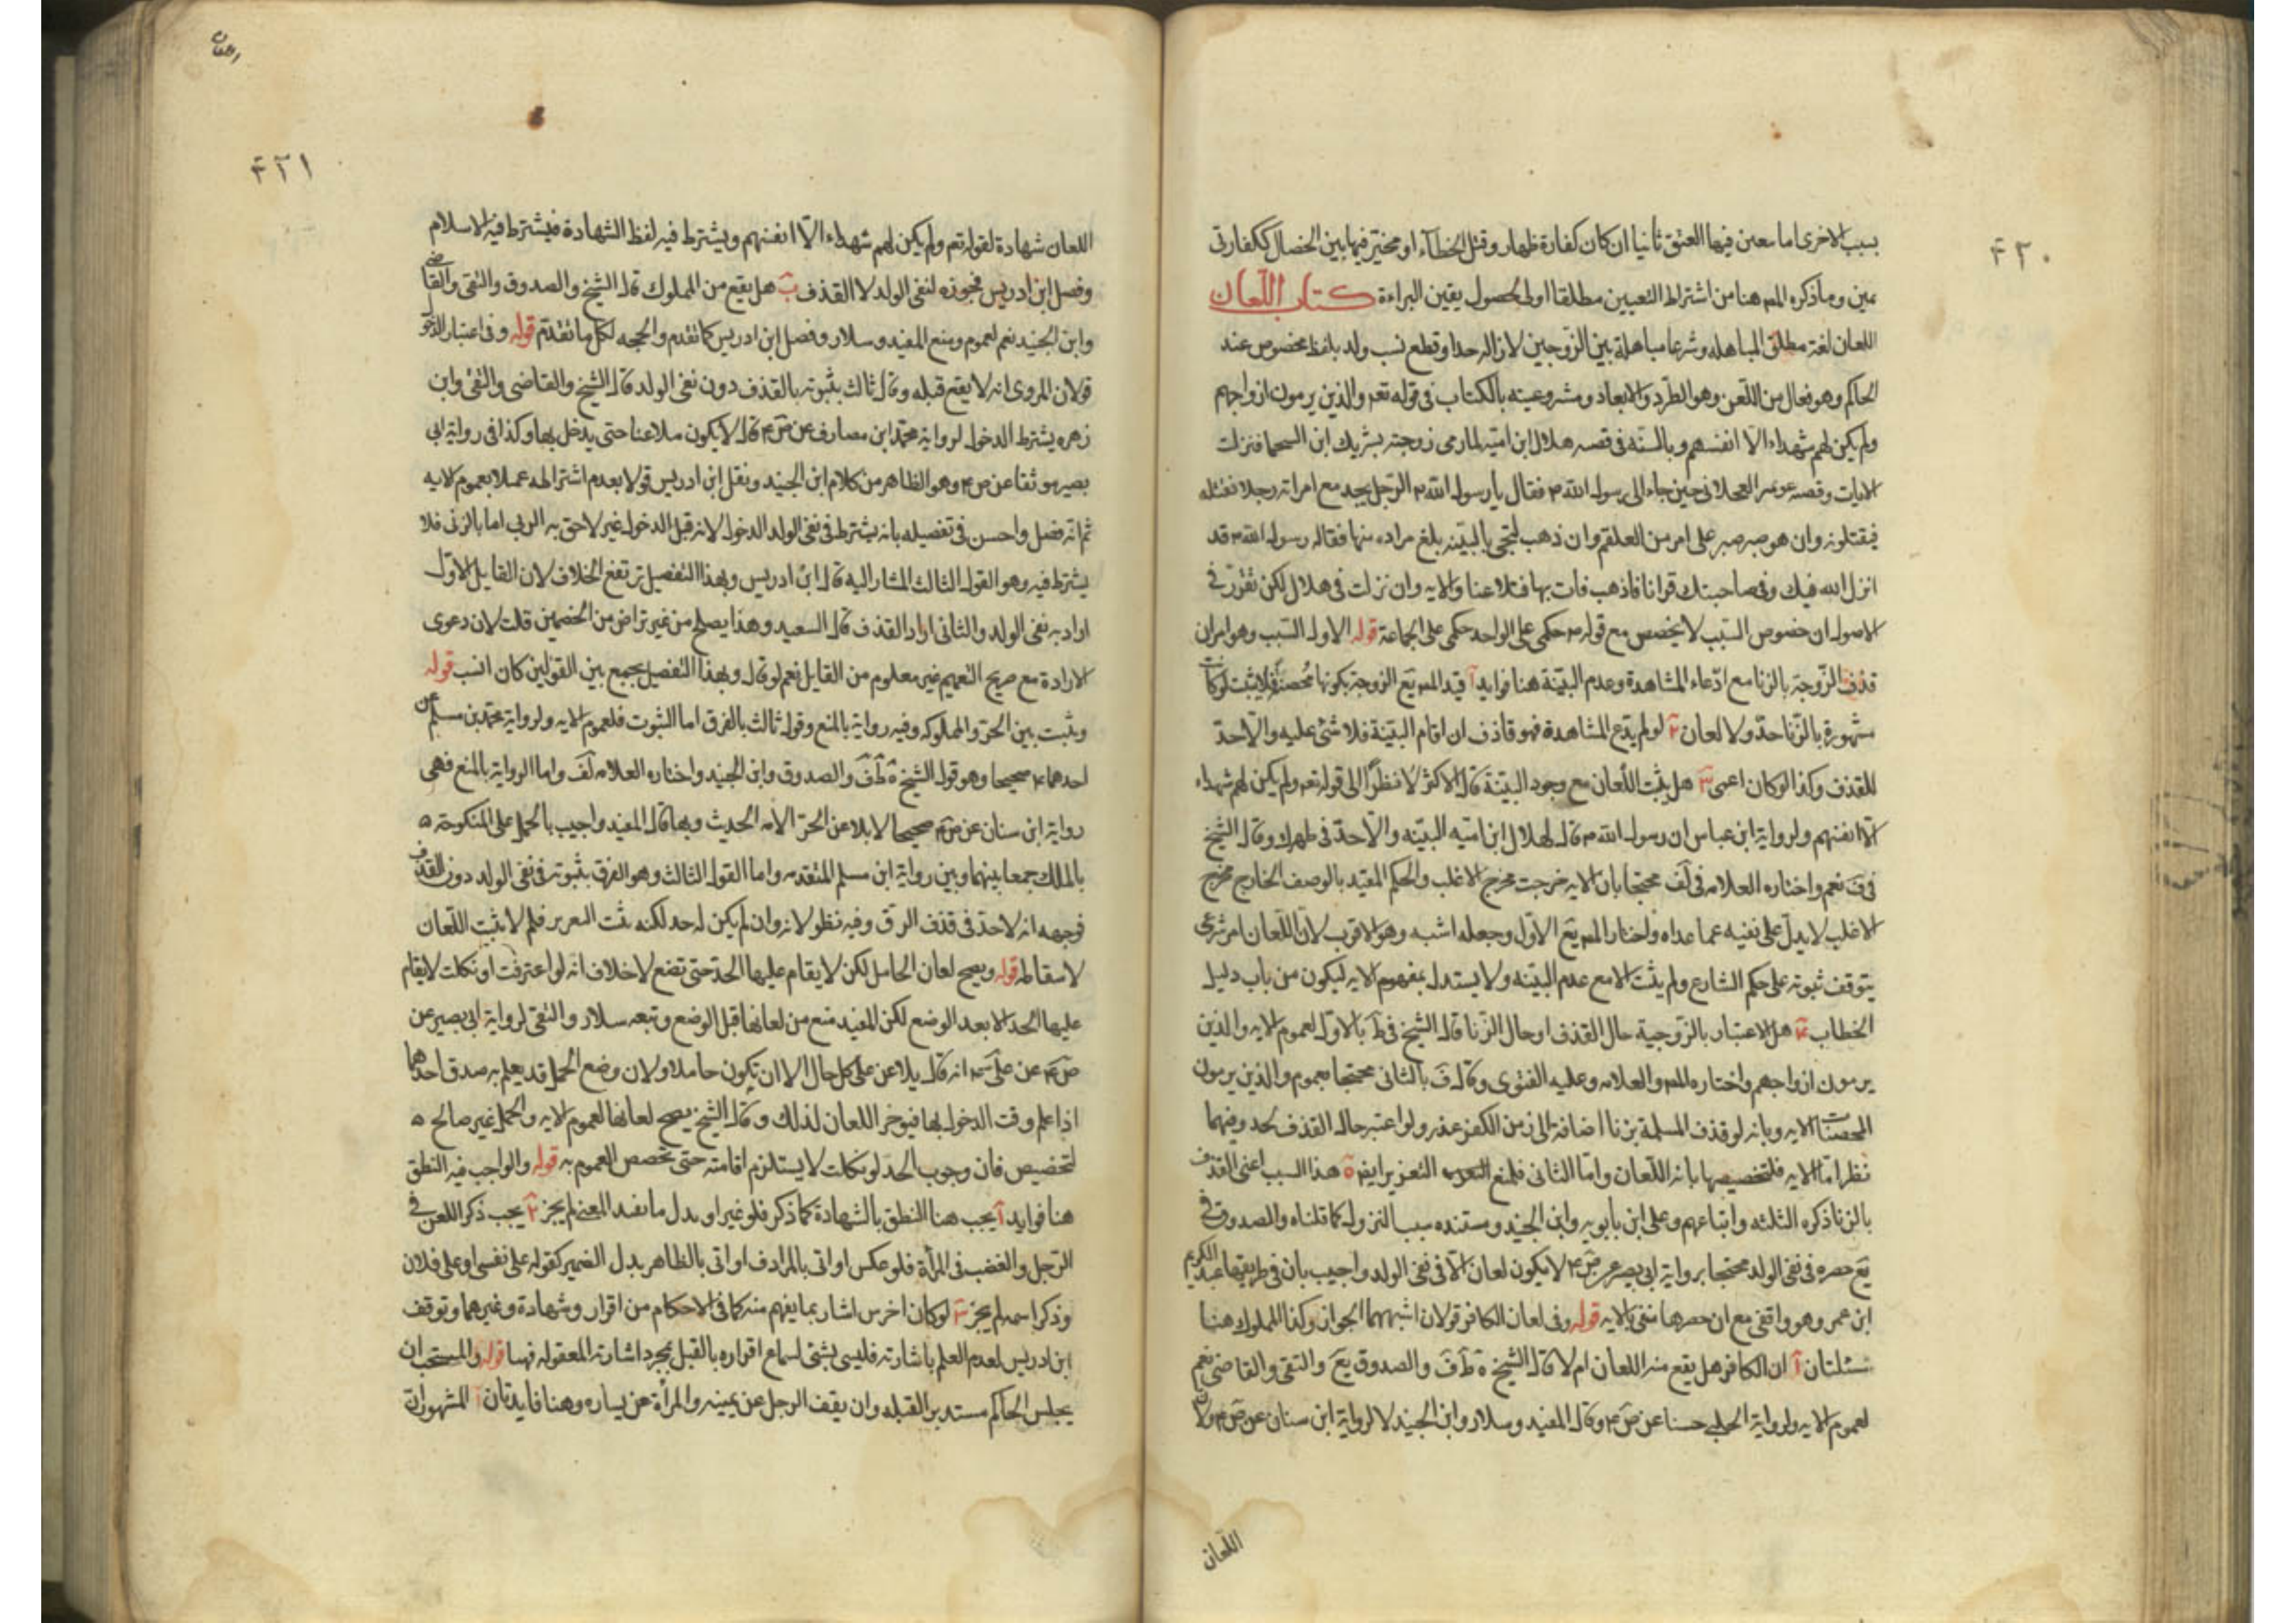 ۴۲۰
بسبب الاخرى اما معين فيها العتق ثانيا ان كان كفارة ظهار وقتل الخطاء او مخير فيها بين الخصال ككفارتى
يمين وما ذكره المصه هنا من اشتراط التعيين مطلقا اولى لحصول يقين البراءة كتاب اللعان
اللعان لغة مطلق المباهله وشرعا مباهلة بين الزوجين لازاله حد او قطع نسب ولد بلفظ مخصوص عند
الحاكم وهو فعال من اللعن وهو الطرد والابعاد ومشروعيته بالكتاب فى قوله تعم والذين يرمون ازواجهم
ولم يكن لهم شهداء الا انفسهم وبالسنه فى قصه هلال ابن اميه لما رمى زوجته بشريك ابن السحما فنزلت
الايات وقصه عويمر العجلانى حين جاء الى رسول الله ص فقال يا رسول الله ص الرجل يجد مع امراته رجلا فقتله
فيقتلونه وان هو صبر صبر على امر من العلقم وان ذهب ليجى بالبينه بلغ مراده منها فقال رسول الله ص قد
انزل الله فيك وفى صاحبتك قرانا فاذهب فات بها فتلاعنا والايه وان نزلت فى هلال لكن تقرر فى
الاصول ان خصوص السبب لا يخصص مع قوله ص حكمى على الواحد حكمى على الجماعة قوله الاول السبب وهو امران
قذف الزوجة بالزنا مع ادعاء المشاهدة وعدم البينة هنا فوايد آ قيد المصه يع الزوجة بكونها محصنة فلا يثبت لو كانت
مشهورة بالزنا حد ولا لعان ٢ لو لم يدع المشاهدة فهو قاذف ان اقام البينة فلا شئ عليه والا حد
للقذف وكذا لو كان اعمى ٣ هل يثبت اللعان مع وجود البينة قال الاكثر لا نظرا الى قوله تعم ولم يكن لهم شهداء
الا انفسهم ولرواية ابن عباس ان رسول الله ص قال لهلال ابن اميه البينه والا حد فى ظهرك وقال الشيخ
فى ف نعم واختاره العلامه فى لف محتجا بان الايه خرجت مخرج الاغلب والحكم المقيد بالوصف الخارج مخرج
الاغلب لا يدل على نفيه عما عداه واختار المصه يع الاول وجعله اشبه وهو الاقرب لان اللعان امر شرعى
يتوقف ثبوته على حكم الشارع ولم يثبت الا مع عدم البينه ولا يستدل بمفهوم الايه ليكون من باب دليل
الخطاب ۴ هل الاعتبار بالزوجية حال القذف او حال الزنا قال الشيخ فى ط بالاول لعموم الايه والذين
يرمون ازواجهم واختاره المصه والعلامه وعليه الفتوى وقال ف بالثانى محتجا بعموم والذين يرمون
المحصنات الايه وبانه لو قذف المسلمة بزنا اضافة الى زمن الكفر عزر ولو اعتبر حال القذف لحد وفيهما
نظر اما الايه فلتخصيصها باية اللعان واما الثانى فلمنع التعزير ايضا ٥ هذا السبب اعنى القذف
بالزنا ذكره الثلثه واتباعهم وعلى ابن بابويه وابن الجنيد ومستنده سبب النزول كما قلناه والصدوق فى
يع حصره فى نفى الولد محتجا برواية ابى بصير عن ص ع لا يكون لعان الا فى نفى الولد واجيب بان فى طريقها عبد الكريم
ابن عمر وهو واقفى مع ان حصرها منفى بالايه قوله وفى لعان الكافر قولان اشبههما الجواز وكذا المملوك هنا
مسئلتان آ ان الكافر هل يقع منه اللعان ام لا قال الشيخ ة ط ف والصدوق يع والتقى والقاضى نعم
لعموم الايه ولرواية الحلبى حسنا عن ص ع وقال المفيد وسلار وابن الجنيد لا لرواية ابن سنان عن ص ع ولان
اللعان
۴۲۱
اللعان شهادة لقوله تعم ولم يكن لهم شهداء الا انفسهم ويشترط فيه لفظ الشهادة فيشترط فيه الاسلام
وفصل ابن ادريس فجوزه لنفى الولد لا القذف ب هل يقع من المملوك قال الشيخ والصدوق والتقى والقاضى
وابن الجنيد نعم لعموم ومنع المفيد وسلار وفصل ابن ادريس كما تقدم والحجه لكل ما تقدم قوله وفى اعتبار الدخول
قولان المروى انه لا يقع قبله وقال ثالث بثبوته بالقذف دون نفى الولد قال الشيخ والقاضى والتقى وابن
زهره يشترط الدخول لرواية محمد ابن مصارف عن ص ع قال لا يكون ملاعنا حتى يدخل بها وكذا فى رواية ابى
بصير موثقا عن ص ع وهو الظاهر من كلام ابن الجنيد ونقل ابن ادريس قولا بعدم اشتراطه عملا بعموم الايه
ثم انه فصل واحسن فى تفصيله بانه يشترط فى نفى الولد الدخول لانه قبل الدخول غير لاحق به اما بالزنى فلا
يشترط فيه وهو القول الثالث المشار اليه قال ابن ادريس وبهذا التفصيل ترتفع الخلاف لان القايل الاول
اراد به نفى الولد والثانى اراد القذف قال السعيد وهذا يصلح من غير تراض من الخصمين قلت لان دعوى
الارادة مع صريح التعميم غير معلوم من القايل نعم لو قال وبهذا التفصيل يجمع بين القولين كان انسب قوله
ويثبت بين الحر والمملوكه وفيه رواية بالمنع وقول ثالث بالفرق اما الثبوت فلعموم الايه ولرواية محمد بن مسلم عن
احدهما ع صحيحا وهو قول الشيخ ة ط ف والصدوق وابن الجنيد واختاره العلامه لف واما الرواية بالمنع فهى
رواية ابن سنان عن ص ع صحيحا لا يلاعن الحر الامه الحديث وبها قال المفيد واجيب بالحمل على المنكوحة ه
بالملك جمعا بينها وبين رواية ابن مسلم المتقدمه واما القول الثالث وهو الفرق بثبوته فى نفى الولد دون القذف
فوجهه انه لا حد فى قذف الرق وفيه نظر لانه وان لم يكن له حد لكنه يثبت التعزير فلم لا يثبت اللعان
لاسقاطه قوله ويصح لعان الحامل لكن لا يقام عليها الحد حتى تضع لا خلاف انه لو اعترفت او نكلت لا يقام
عليها الحد الا بعد الوضع لكن المفيد منع من لعانها قبل الوضع وتبعه سلار والتقى لرواية ابى بصير عن
ص ع عن على ع انه قال يلاعن على كل حال الا ان تكون حاملا ولان وضع الحمل قد يعلم به صدق احدهما
اذا علم وقت الدخول بها فيوخر اللعان لذلك وقال الشيخ يصح لعانها لعموم الايه والحمل غير صالح ه
لتخصيص فان وجوب الحد لو نكلت لا يستلزم اقامته حتى يخصص العموم به قوله والواجب فيه النطق
هنا فوايد آ يجب هنا النطق بالشهادة كما ذكر فلو غير او بدل ما يفيد المعنى لم يجز ٢ يجب ذكر اللعن فى
الرجل والغضب فى المرأة فلو عكس او اتى بالمرادف او اتى بالظاهر بدل الضمير كقوله على نفسى او على فلان
وذكر اسمه لم يجز ٣ لو كان اخرس اشار بما يفهم منه كما فى الاحكام من اقرار وشهادة وغيرهما وتوقف
ابن ادريس لعدم العلم باشارته فليس بشئ لسماع اقراره بالقبل بمجرد اشارته المعقوله فهنا قوله والمستحب ان
يجلس الحاكم مستدبر القبله وان يقف الرجل عن يمينه والمرأة عن يساره وهنا فايدتان آ المشهور ان